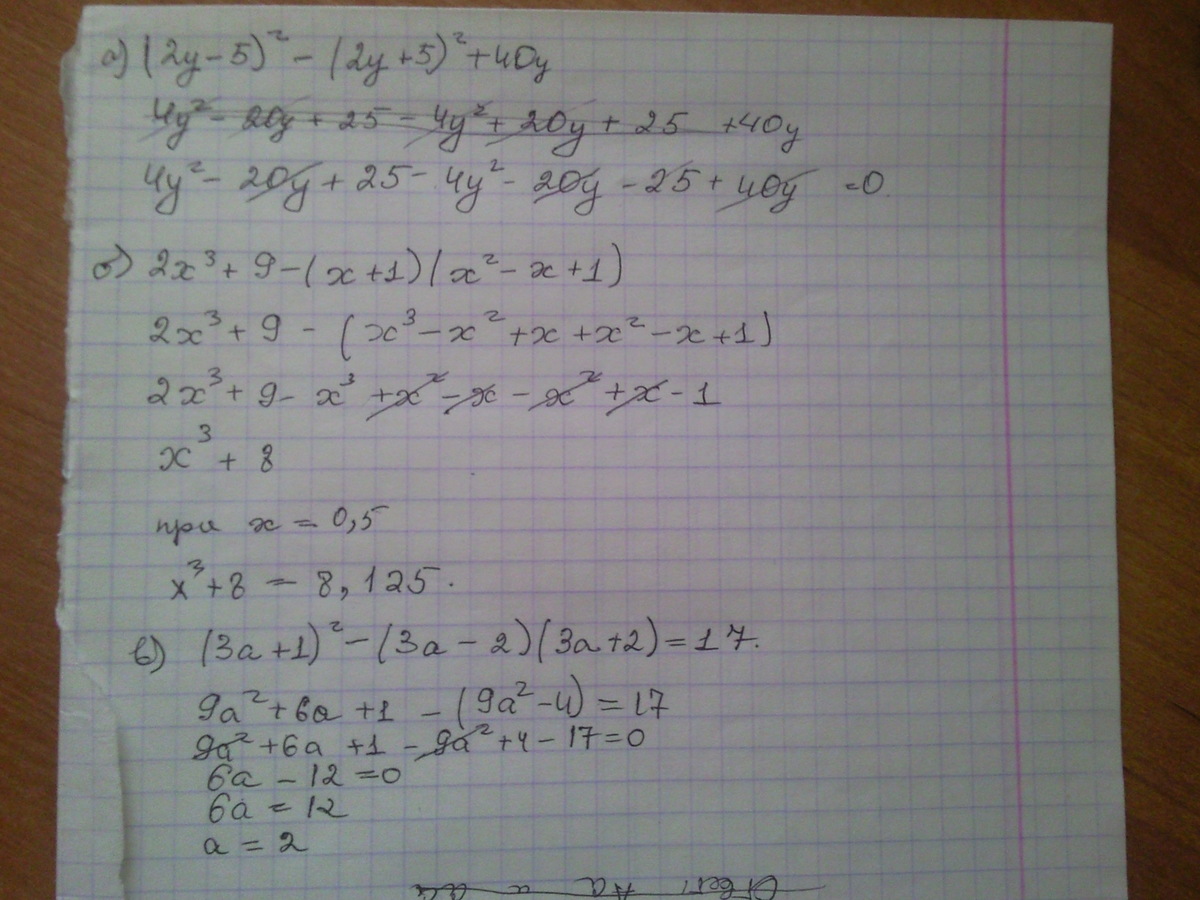 а) (2y-5)² - (2y+5)² + 40y
4y² - 20y + 25 - 4y² + 20y + 25 + 40y
4y² - 20y + 25 - 4y² - 20y - 25 + 40y = 0.
б) 2x³ + 9 - (x+1)(x² - x + 1)
2x³ + 9 - (x³ - x² + x + x² - x + 1)
2x³ + 9 - x³ + x² - x - x² + x - 1
x³ + 8
при x = 0,5
x³ + 8 = 8,125.
в) (3a+1)² - (3a-2)(3a+2) = 17.
9a² + 6a + 1 - (9a² - 4) = 17
9a² + 6a + 1 - 9a² + 4 - 17 = 0
6a - 12 = 0
6a = 12
a = 2